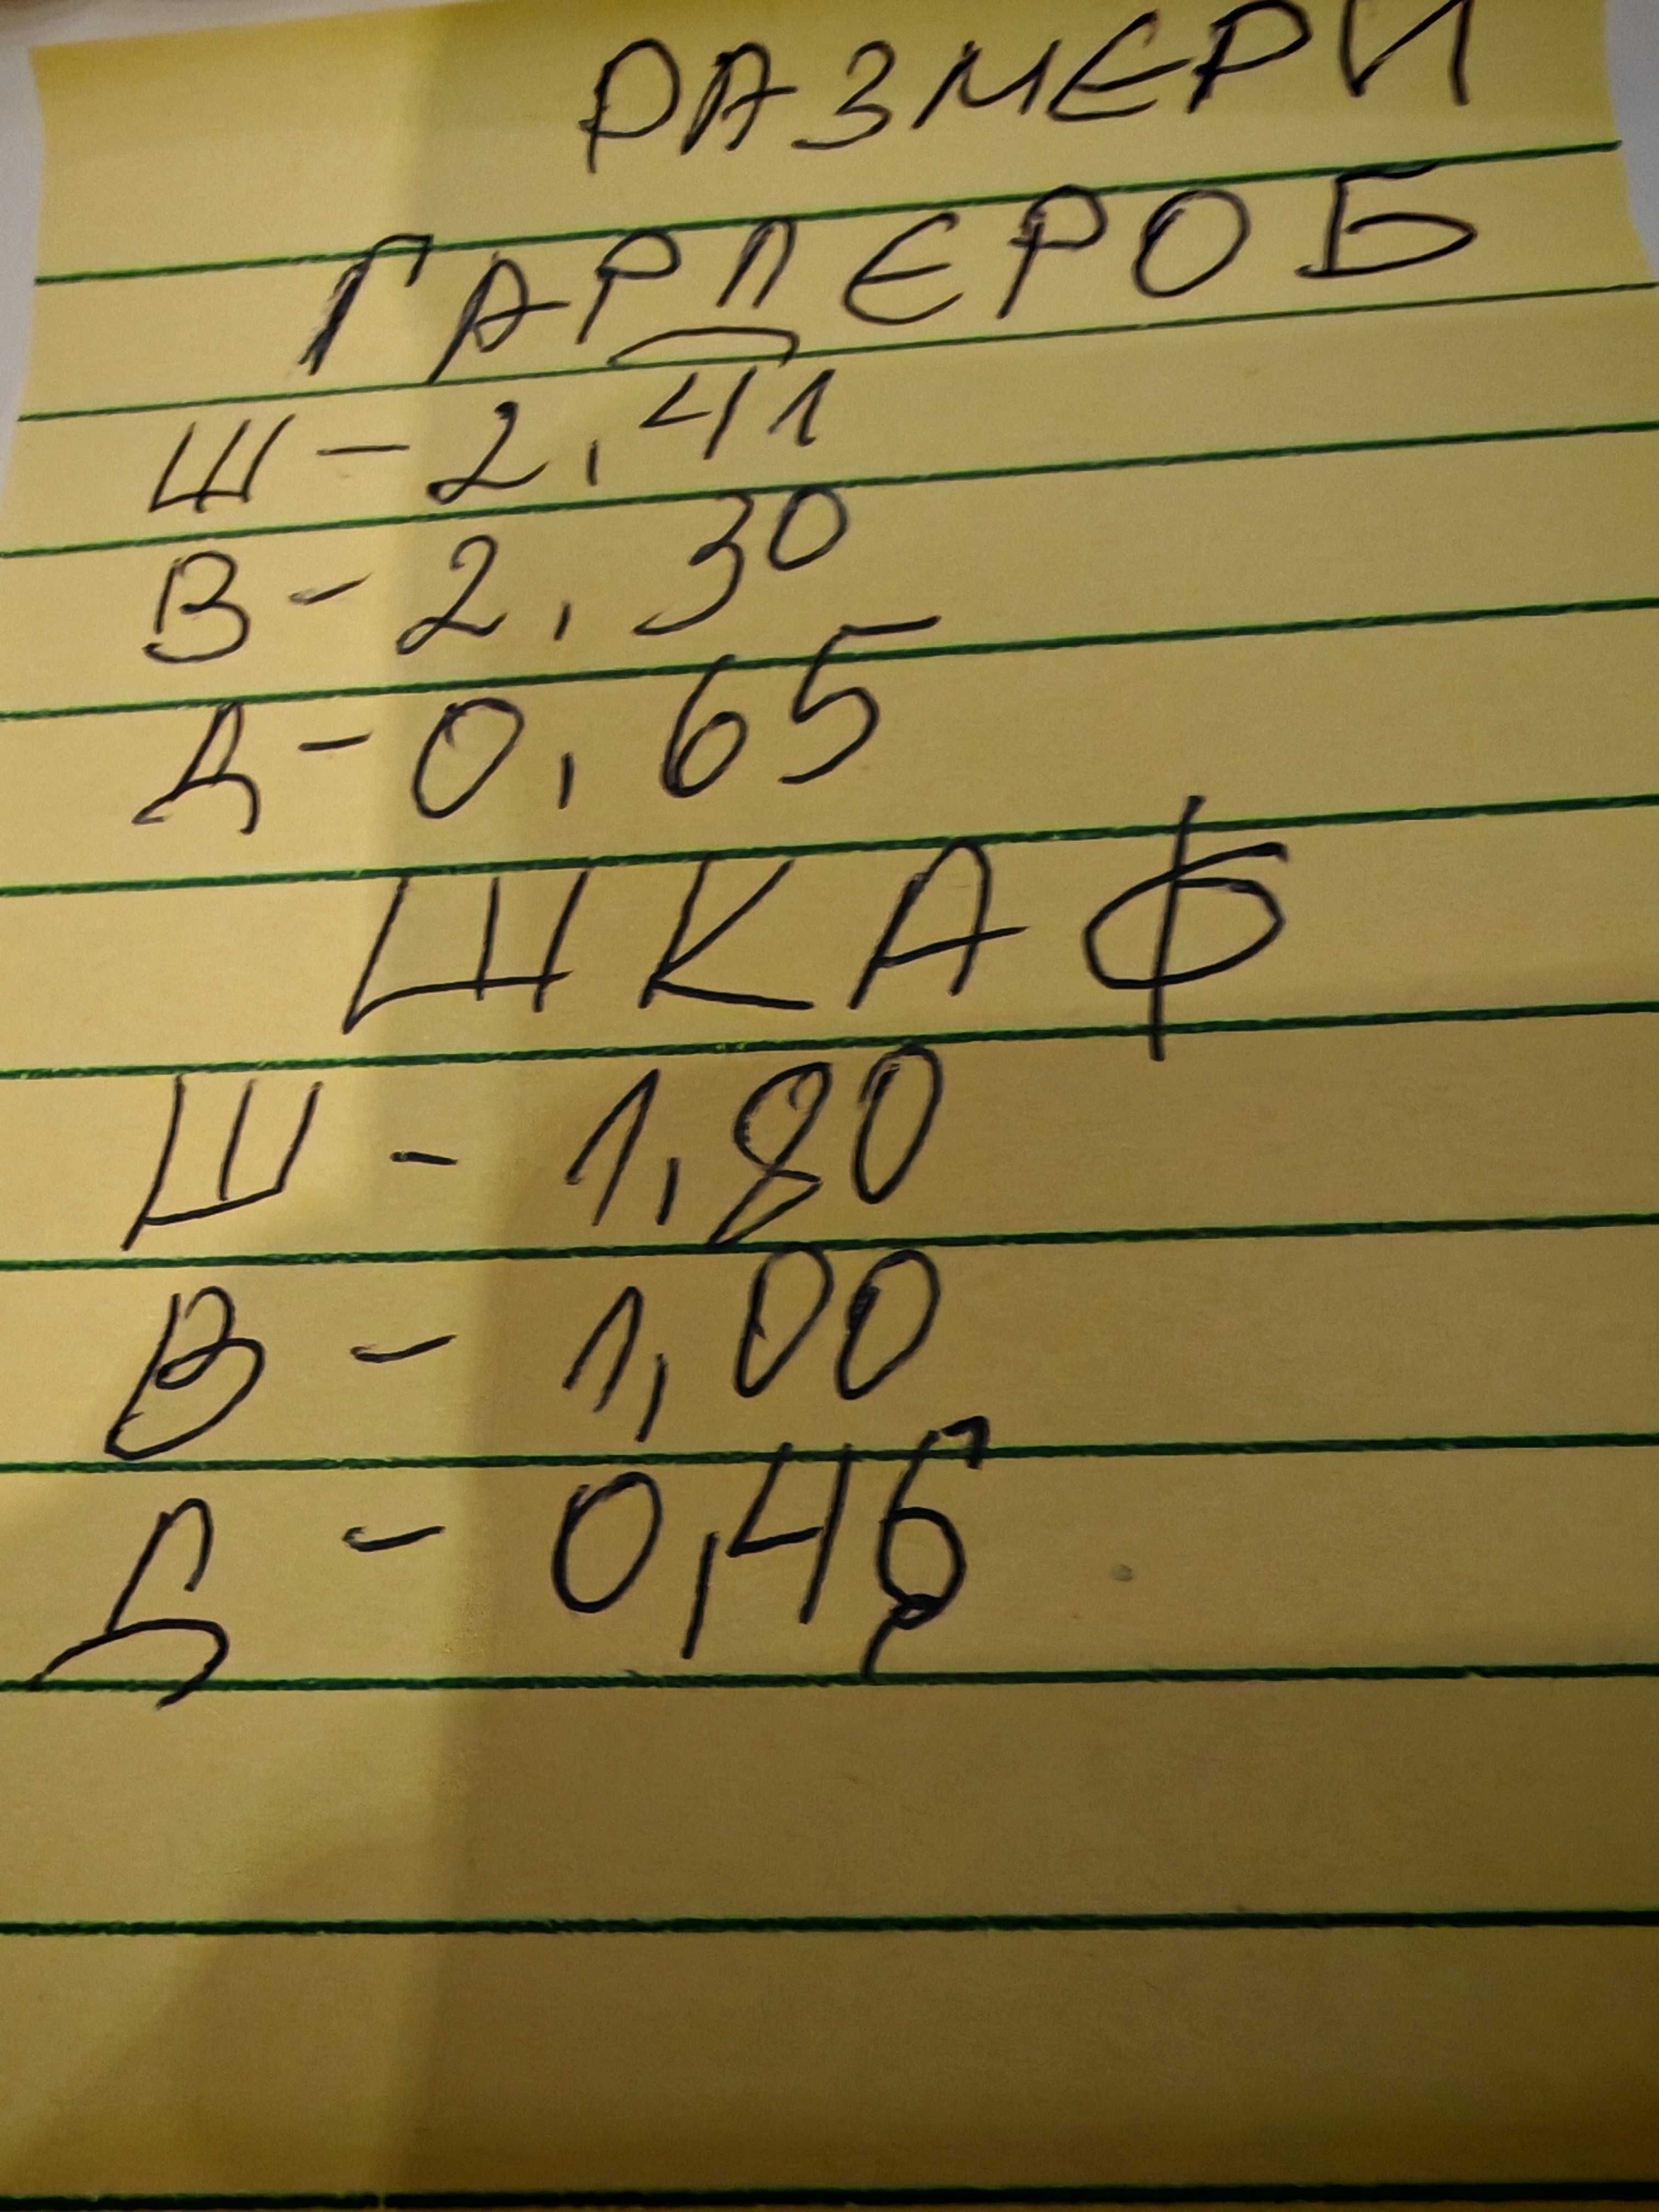 РАЗМЕРИ
ГАРДЕРОБ
Ш - 2,41
В - 2,30
Д - 0,65
ШКАФ
Ш - 1,80
В - 1,00
Д - 0,46